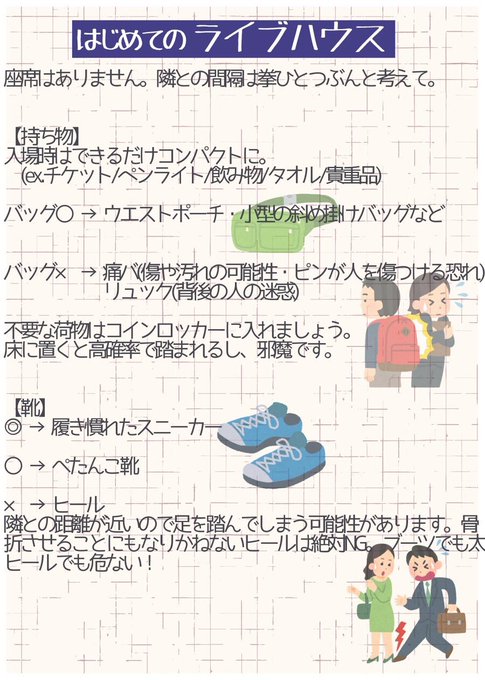 はじめての ライブハウス
座席はありません。隣との間隔は拳ひとつぶんと考えて。
【持ち物】
入場時はできるだけコンパクトに。
(ex.チケット/ペンライト/飲み物/タオル/貴重品)
バッグ○ → ウエストポーチ・小型の斜め掛けバッグなど
バッグ× → 痛バ(傷や汚れの可能性・ピンが人を傷つける恐れ)
リュック(背後の人の迷惑)
不要な荷物はコインロッカーに入れましょう。
床に置くと高確率で踏まれるし、邪魔です。
【靴】
◎ → 履き慣れたスニーカー
○ → ぺたんこ靴
× → ヒール
隣との距離が近いので足を踏んでしまう可能性があります。骨
折させることにもなりかねないヒールは絶対NG。ブーツでも太
ヒールでも危ない！